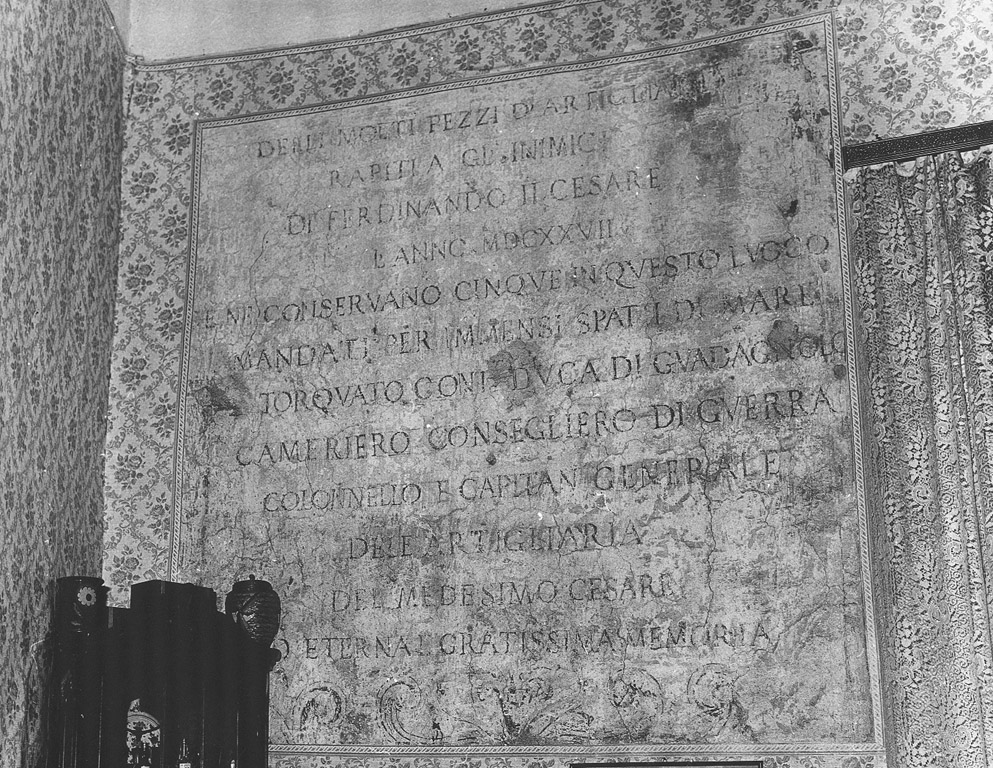 DELLI MOLTI PEZZI D'ARTIGLIARIE
RAPITI A GL'INIMICI
DI FERDINANDO II CESARE
L'ANNO MDCXXVII
E NE CONSERVANO CINQVE IN QVESTO LVOGO
MANDATI PER IMMENSI SPATII DI MARE
TORQVATO CONTI DVCA DI GVADAGNOLO
CAMERIERO CONSEGLIERO DI GVERRA
COLONNELLO E CAPITAN GENERALE
DELL'ARTIGLIARIA
DEL MEDESIMO CESARE
ETERNA E GRATISSIMA MEMORIA